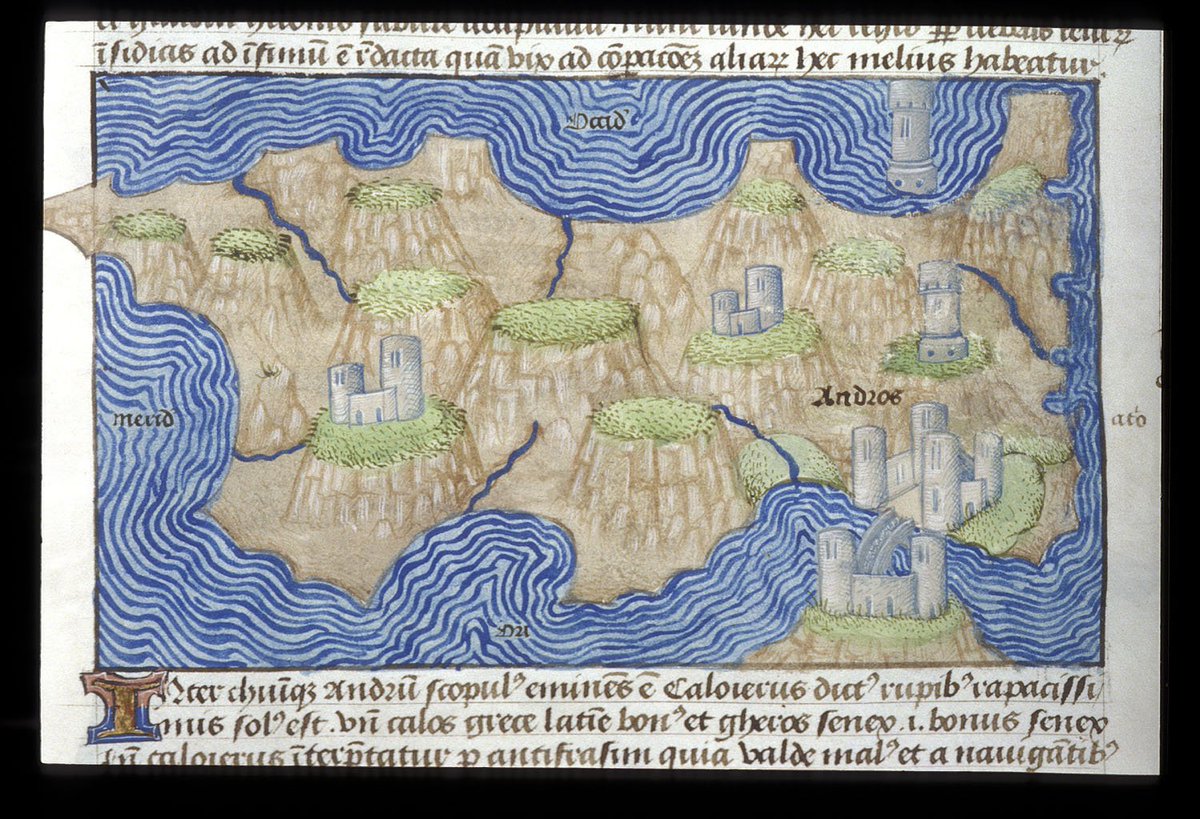 īsidias ad īfimū ē r̄dacta quā vix ad cōpacōeȝ aliaꝝ hec melius habeatur.
Occid
Andros
merid
Ori
INter chiūqȝ Andrū scopulꝰ eminēs ē Caloierus dictꝰ rupibꝰ rapacissi
mus solꝰ est. vn̄ calos grece latīe bonꝰ et gheros senex .i. bonus senex
caloierus īterp̄tatur p antifrasim quia valde malꝰ et a nauigātibꝰ